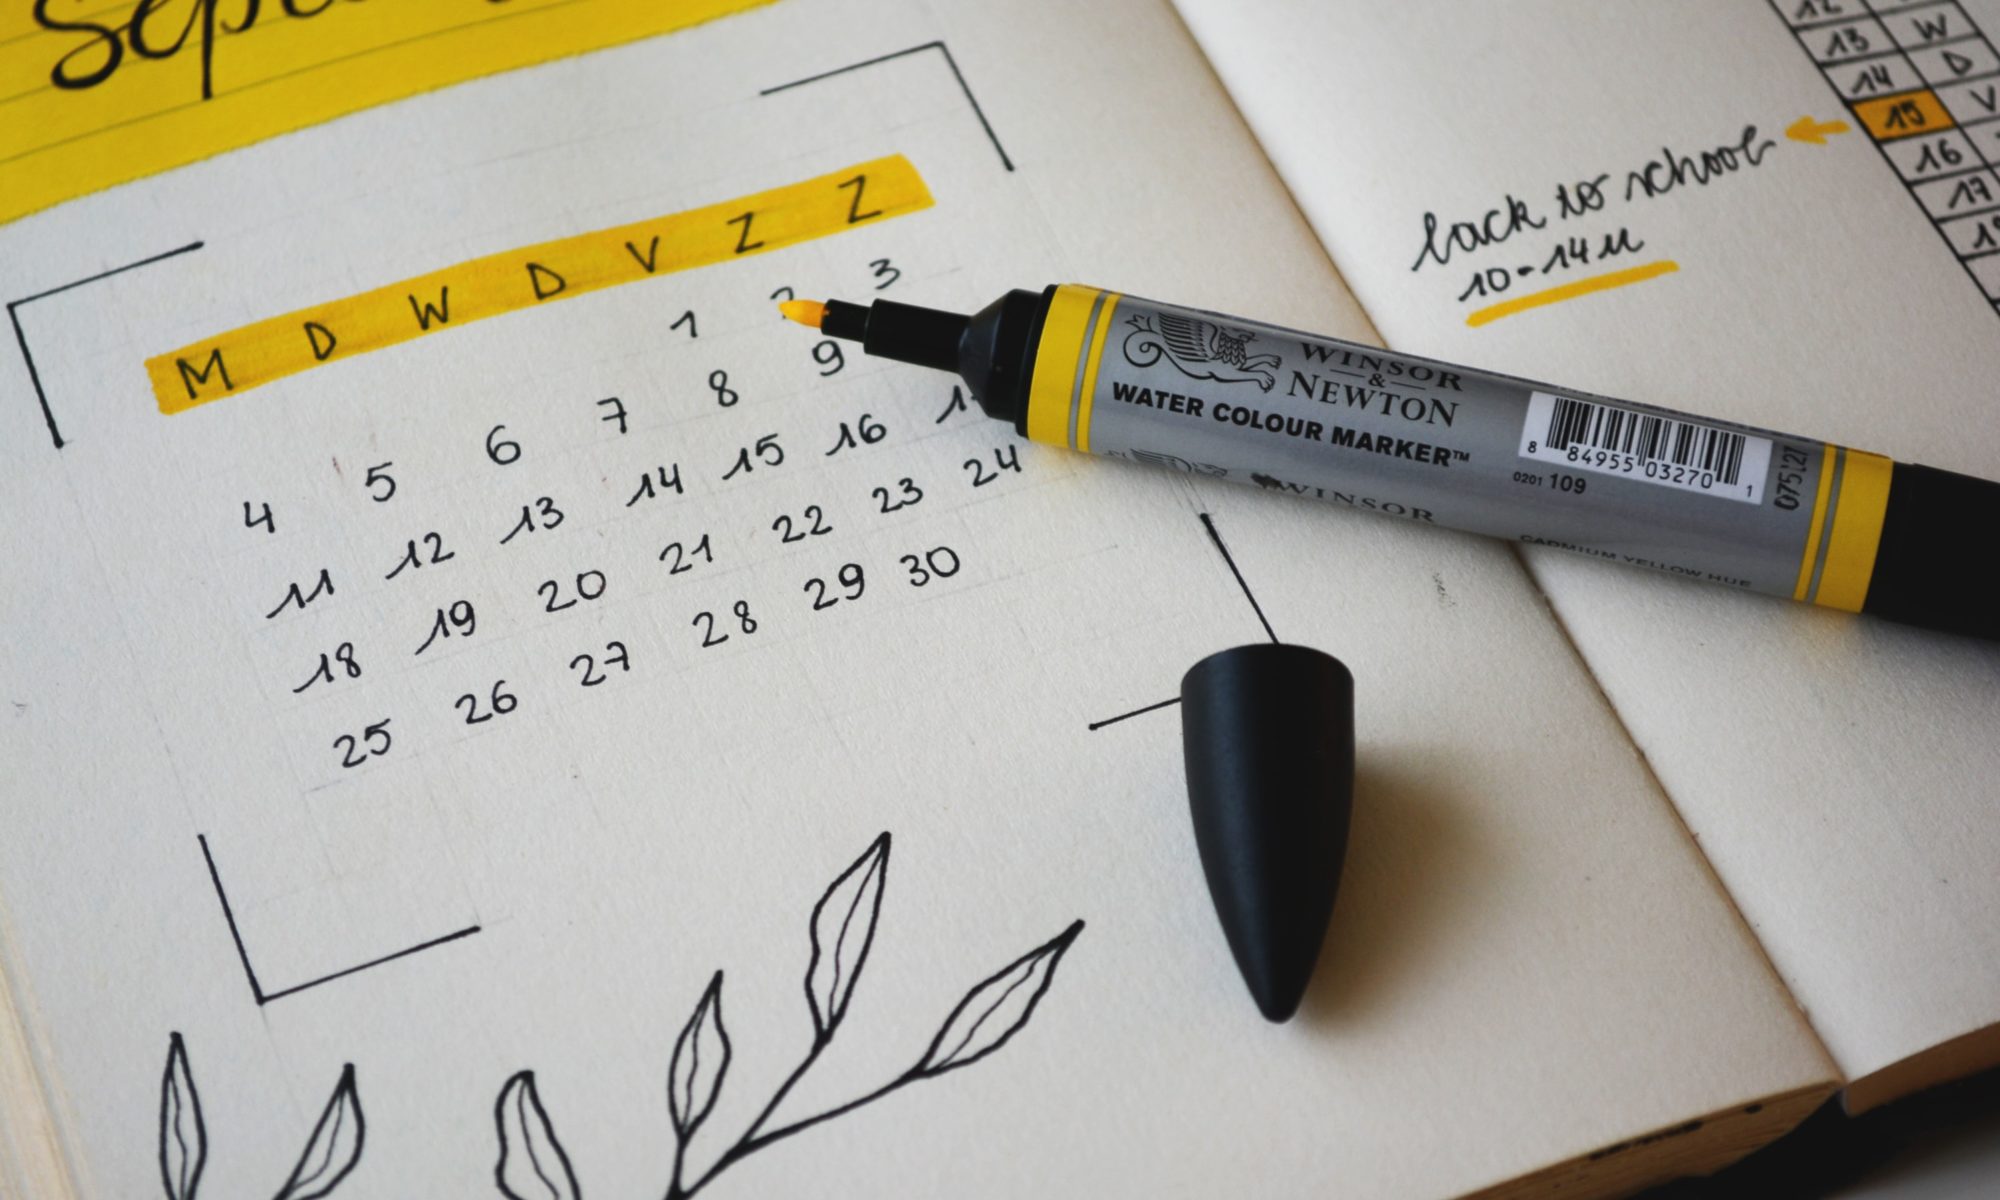 M D W D V Z Z
1 2 3
4 5 6 7 8 9
11 12 13 14 15 16
18 19 20 21 22 23 24
25 26 27 28 29 30
WINSOR
&
NEWTON
WATER COLOUR MARKER™
8 84955 03270 1
0201 109
WINSOR
CADMIUM YELLOW HUE
back to school
10-14u
12
13 W
14 D
15 V
16
17